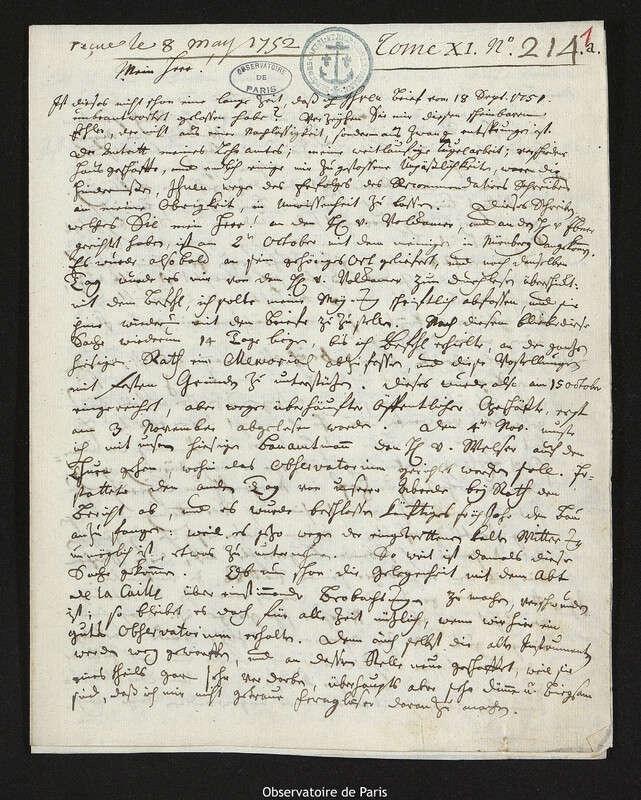 reçue le 8 may 1752
Tome XI. N.º 214.a.
1
OBSERVATOIRE DE PARIS
Mein Herr.
Ist dieses nicht schon eine lange Zeit, daß ich Ihren Brief vom 18 Sept. 1751.
unbeantwortet gelassen habe? Verzeihen Sie mir diesen scheinbaren
Fehler, der nicht aus einer Nachlässigkeit, sondern aus Zwang entsprungen ist.
Der Antritt meines Amtes; meine weitläufige arbeit;
Haus geschäffte, und endlich einige mir zugestossene Unpäßlichkeit, waren die
Hindernisse, Ihnen wegen des Erfolges des Recommendations Schreiben
an meine Obrigkeit, in Unwissenheit zu lassen. Dieses Schreiben
welches Sie mein Herr! an den H. v. Volckamer, und an den H. v. Ebner
gericht haben, ist am 2ten October mit dem meinigen in Nürnberg angekomen.
Es wurde alsobald an sein gehöriges Ort geliefert, und noch denselben
Tag wurde es mir von dem H. v. Volckamer zum durchlesen überschickt:
mit dem Befehl, ich solte meine Meynung schrifftlich abfassen und sie
ihme wieder mit dem Briefe zuzustellen. Nach diesem bliebe diese
Sache wiederum 14 Tage liegen, bis ich Befehl erhielte, an den ganzen
hiesigen Rath ein Memorial abzufassen, und diese Vorstellungen
mit festen Gründen zu unterstützen. Dieses wurde also am 15 October
eingereicht, aber wegen überhäuffter öffentlicher Geschäfte, erst
am 3 November abgelesen worden. Den 4ten Nov. muste
ich mit unsern hiesigen Bauamtmann dem H. v. Welser auf den
Thurn gehen, wohin das Observatorium gericht werden soll. Er
stattete den andern Tag von unserer Abrede bey Rath den
Bericht ab, und es wurde beschlossen künfftiges frühjahr den Bau
anzufangen: weil es jetzo wegen der eingetrettenen kalten Witterung
unmöglich ist, etwas zu unternehmen. So weit ist damals diese
Sache gekommen. Ob nun schon die Gelegenheit mit dem Abt
de la Caille über einstimmende Beobachtungen zu machen, verschwunden
ist; so bleibt es doch für alle Zeit nützlich, wenn wir hier ein
gutes Observatorium erhalten. Dann auch selbst die alte Instrumente
werden weg geworffen, und an dessen Stelle neue geschafft, weil sie
eines theils gar sehr verdorben, überhaupts aber sehr dünne u. biegsam
sind, daß ich mir nicht getraue Ferngläser daran zu machen.
Observatoire de Paris